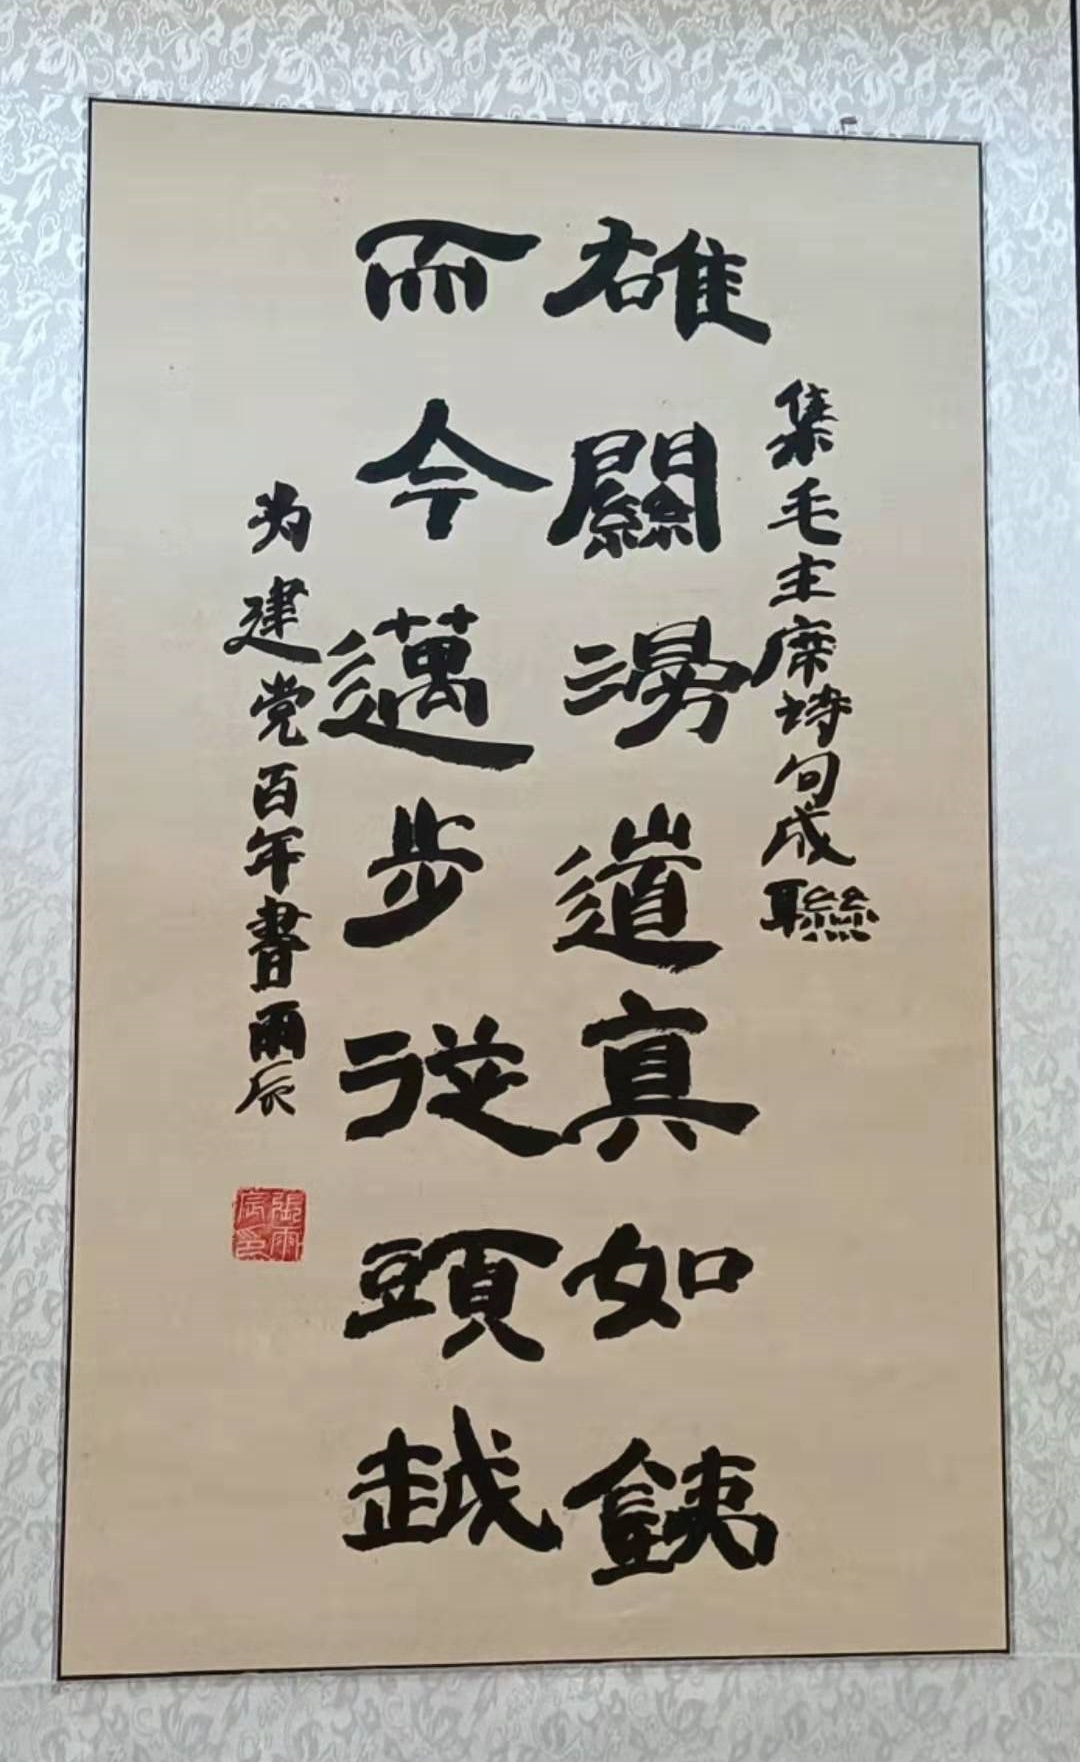 集毛主席诗句成聯
雄關漫道真如鐵
而今邁步從頭越
为建党百年書雨辰
張雨辰印